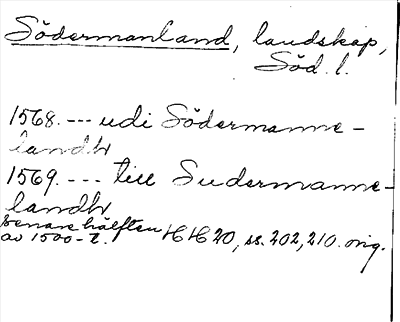 Södermanland, landskap,
Söd. l.
1568. --- udi Södermanne-
landh
1569. --- till Sudermanne-
landh
Senare hälften
av 1500-t. HH 20, ss. 202, 210. orig.